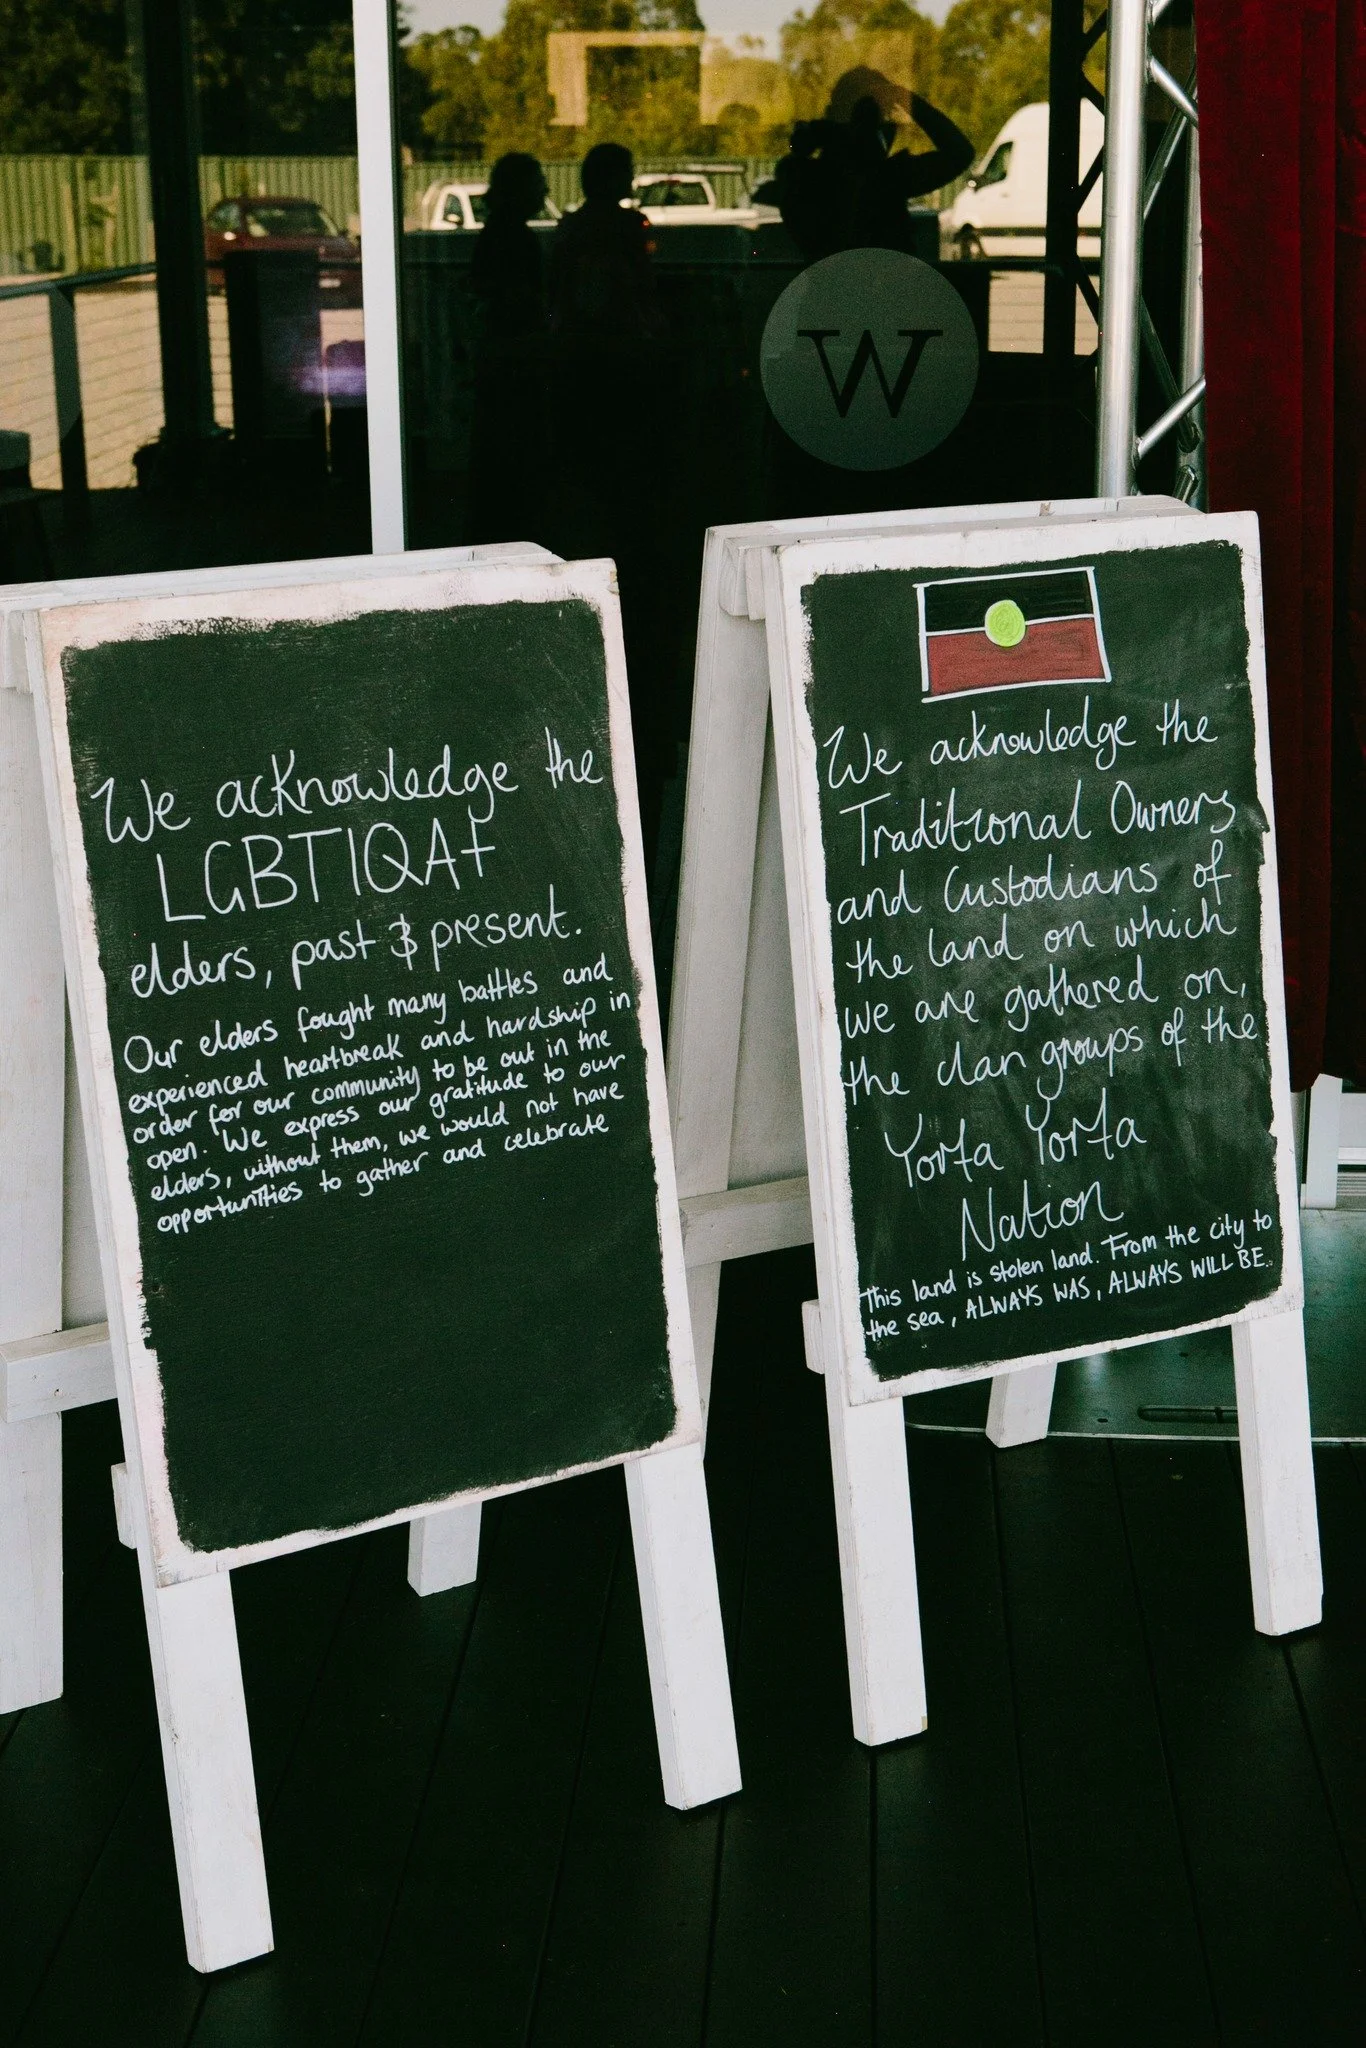 W
We acknowledge the
LGBTIQA+
elders, past & present.
Our elders fought many battles and
experienced heartbreak and hardship in
order for our community to be out in the
open. We express our gratitude to our
elders, without them, we would not have
opportunities to gather and celebrate
We acknowledge the
Traditional Owners
and Custodians of
the land on which
we are gathered on,
the clan groups of the
Yorta Yorta
Nation
This land is stolen land. From the city to
the sea, ALWAYS WAS, ALWAYS WILL BE.